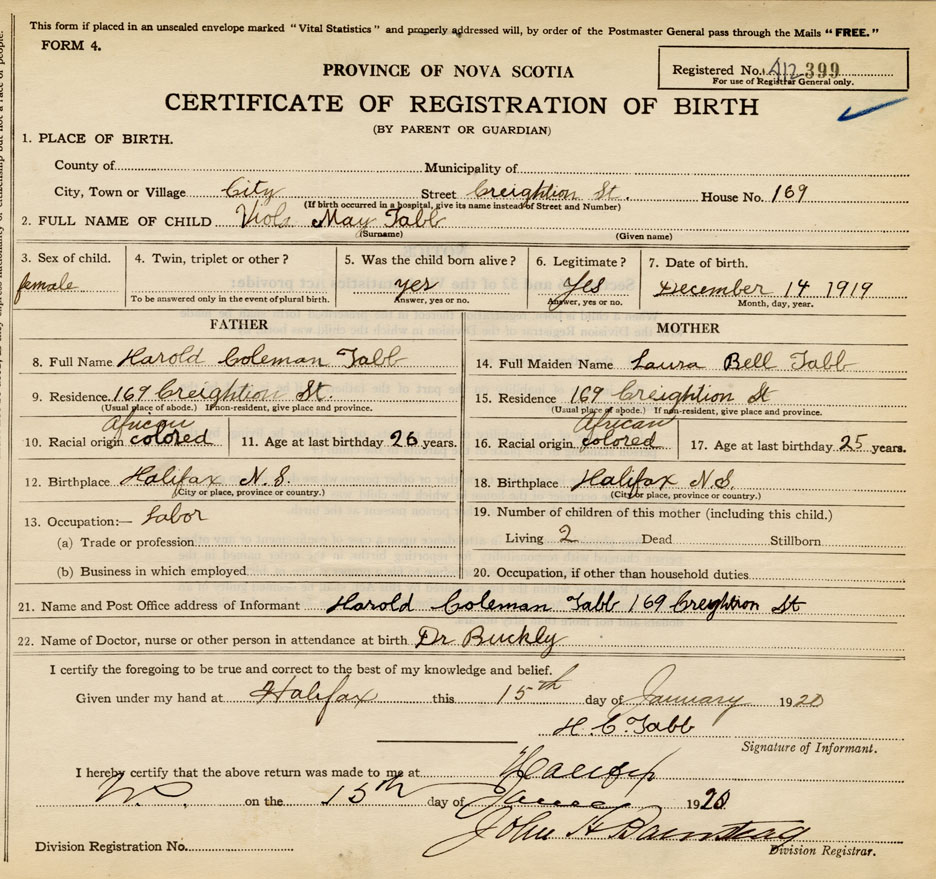 This form if placed in an unsealed envelope marked "Vital Statistics" and properly addressed will, by order of the Postmaster General pass through the Mails "FREE."
FORM 4.
PROVINCE OF NOVA SCOTIA
Registered No. 412 399
For use of Registrar General only.
CERTIFICATE OF REGISTRATION OF BIRTH
(BY PARENT OR GUARDIAN)
1. PLACE OF BIRTH.
County of Municipality of
City, Town or Village City Street Creightion St. House No. 169
(If birth occurred in a hospital, give its name instead of Street and Number)
2. FULL NAME OF CHILD Viola May Tabb
(Surname) (Given name)
3. Sex of child. 4. Twin, triplet or other? 5. Was the child born alive? 6. Legitimate? 7. Date of birth.
female yes Yes December 14 1919
To be answered only in the event of plural birth. Answer, yes or no. Answer, yes or no. Month, day, year.
FATHER MOTHER
8. Full Name Harold Coleman Tabb 14. Full Maiden Name Laura Bell Tabb
9. Residence. 169 Creightion St. 15. Residence 169 Creightion St
(Usual place of abode.) If non-resident, give place and province. (Usual place of abode.) If non-resident, give place and province.
African African
10. Racial origin colored 11. Age at last birthday 26 years. 16. Racial origin colored 17. Age at last birthday 25 years.
12. Birthplace Halifax N.S. 18. Birthplace Halifax N.S.
(City or place, province or country.) (City or place, province or country.)
13. Occupation:— Labor 19. Number of children of this mother (including this child.)
(a) Trade or profession Living 2 Dead Stillborn
(b) Business in which employed 20. Occupation, if other than household duties
21. Name and Post Office address of Informant Harold Coleman Tabb 169 Creightion St
22. Name of Doctor, nurse or other person in attendance at birth Dr Buckly
I certify the foregoing to be true and correct to the best of my knowledge and belief.
Given under my hand at Halifax this 15th day of January 1920
H. C. Tabb
Signature of Informant.
I hereby certify that the above return was made to me at Halifax
N.S. on the 15th day of 1920
John A
Division Registration No. Division Registrar.